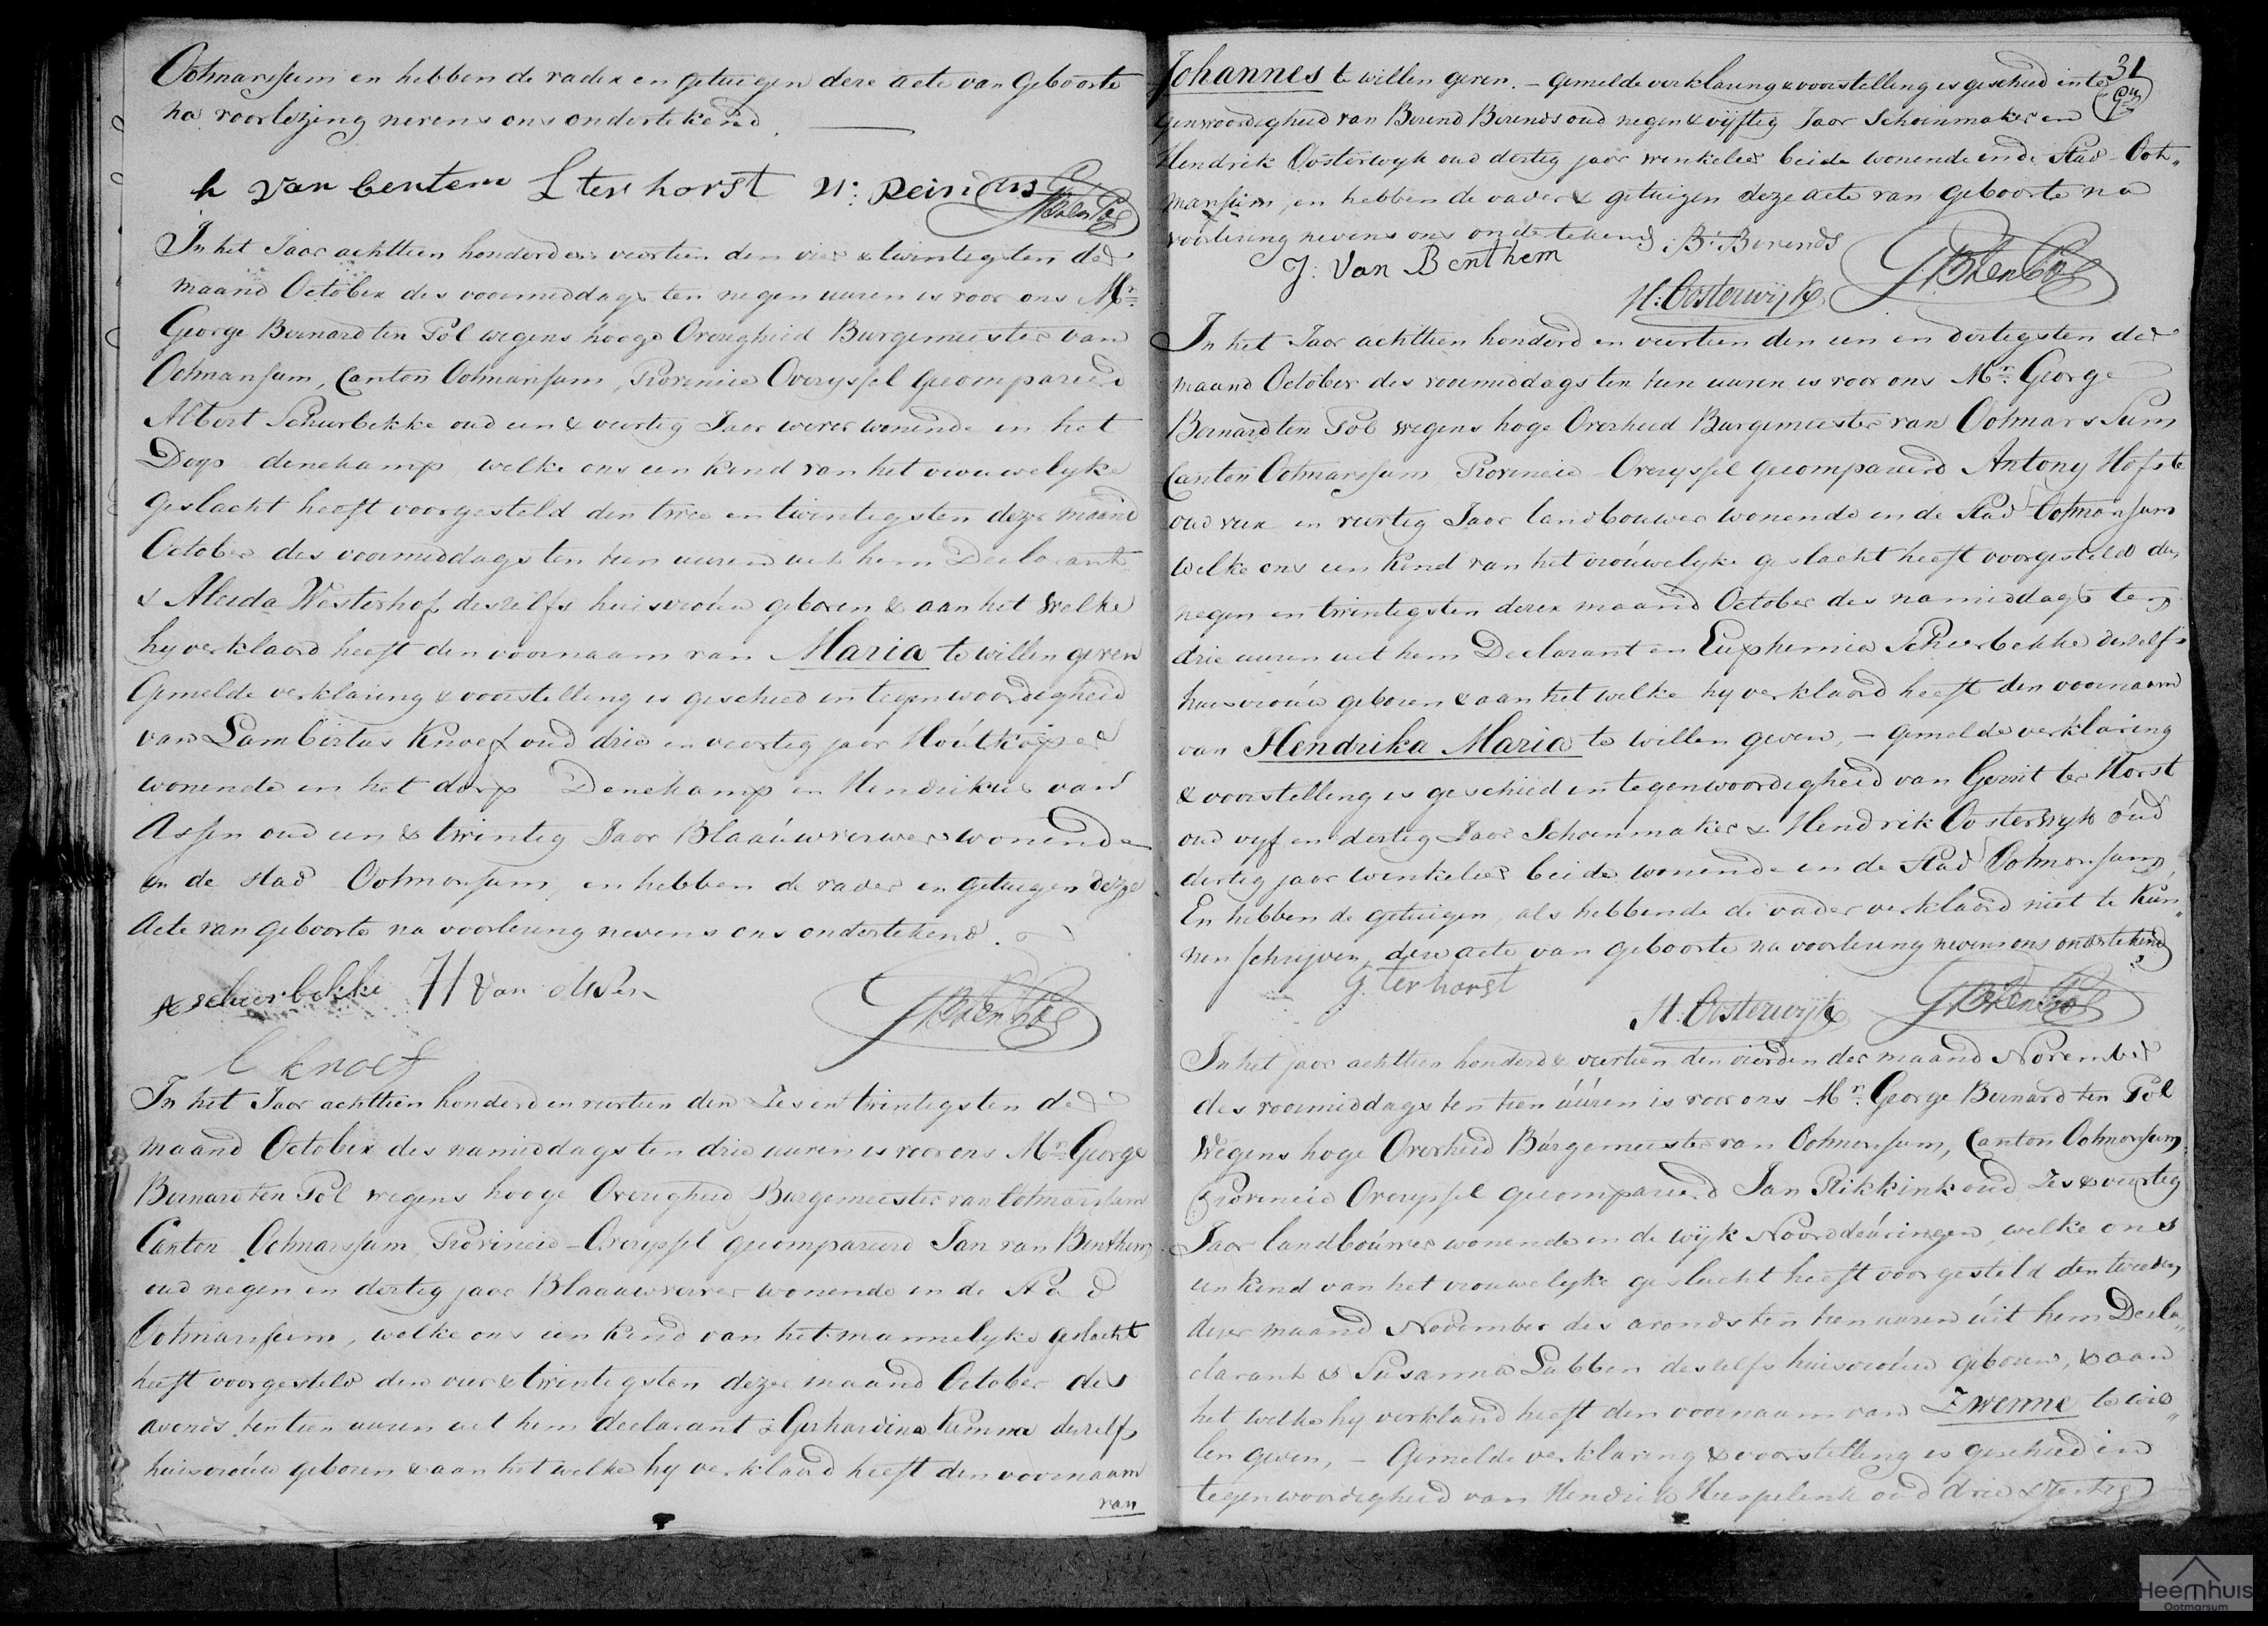 Ootmarssum en hebben de vader en getuigen deze acte van geboorte
na voorlezing nevens ons ondertekend.
h van bentem L ter horst N: Reinders GBtenPol
In het Jaar achttien honderd en veertien den vier & twintigsten der
maand October des voormiddags ten negen uuren is voor ons Mr.
George Bernard ten Pol wegens hooge Overigheid Burgemeester van
Ootmarsum, Canton Ootmarsum, Provincie Overyssel gecompareerd
Albert Scheurbekke oud een & veertig Jaar wever wonende in het
Dorp denekamp, welke ons een kind van het vrouwelyke
geslacht heeft voorgesteld den twee en twintigsten dezer maand
October des voormiddags ten tien uuren uit hem Declarant
& Aleida Westerhof deszelfs huisvrouw geboren & aan het welke
hy verklaard heeft den voornaam van Maria te willen geven
Gemelde verklaring & voorstelling is geschied in tegenwoordigheid
van Lambertus Knoef oud drie en veertig jaar Houtkoper
wonende in het dorp Denekamp en Hendrikus van
Assen oud een & twintig Jaar Blaauwverwer wonende
in de stad Ootmarsum, en hebben de vader en getuigen deze
Acte van geboorte na voorlezing nevens ons ondertekend.
A scheurbekke H van Assen GBtenPol
L knoef
In het Jaar achttien honderd en veertien den Zes en twintigsten der
maand October des namiddags ten drie uuren is voor ons Mr. George
Bernard ten Pol wegens hooge Overigheid Burgemeester van Ootmarssum
Canton Ootmarssum, Provincie Overyssel gecompareerd Jan van Benthem
oud negen en dertig jaar Blaauwverver wonende in de Stad
Ootmarssum, welke ons een kind van het mannelyke geslacht
heeft voorgesteld den vier & twintigsten dezer maand October des
avonds ten tien uuren uit hem declarant & Gerhardina Kemna deszelfs
huisvrouw geboren & aan het welke hy verklaard heeft den voornaam
van
31
Johannes te willen geven. – Gemelde verklaring & voorstelling is geschied in te
genwoordigheid van Berend Berends oud negen & vyftig Jaar Schoenmaker en
Hendrik Oosterwyk oud dertig jaar winkelier beide wonende in de Stad Oot„
marsum, en hebben de vader & getuigen deze acte van geboorte na
voorlezing nevens ons ondertekend B: Berends
J: Van Benthem GBtenPol
H: Oosterwijk
In het Jaar achttien honderd en veertien den een en dertigsten der
maand October des voormiddags ten tien uuren is voor ons Mr. George
Bernard ten Pol wegens hoge Overheid Burgemeester van Ootmarssum
Canton Ootmarssum Provincie Overyssel gecompareerd Antony Hofste
oud vier en veertig Jaar landbouwer wonende in de Stad Ootmarsum
welke ons een kind van het vrouwelyke geslacht heeft voorgesteld den
negen en twintigsten dezer maand October des namiddags ten
drie uuren uit hem Declarant en Euphemia Scheurbekke deszelfs
huisvrouw geboren & aan het welke hy verklaard heeft den voornaam
van Hendrika Maria te willen geven, – gemelde verklaring
& voorstelling is geschied in tegenwoordigheid van Gerrit ter Horst
oud vyf en dertig Jaar Schoenmaker & Hendrik Oosterwyk oud
dertig jaar winkelier beide wonende in de Stad Ootmarsum,
En hebben de getuigen, als hebbende de vader verklaard niet te kun„
nen schrijven, deze acte van geboorte na voorlezing nevens ons ondertekend
G. ter horst
H: Oosterwijk GBtenPol
In het jaar achttien honderd & veertien den vierden der maand November
des voormiddags ten tien uuren is voor ons Mr. George Bernard ten Pol
Wegens hoge Overheid Burgemeester van Ootmarsum, Canton Ootmarsum,
Provincie Overyssel gecompareerd Jan Rikkink oud Zes & veertig
Jaar landbouwer wonende in de wijk Noorddeuringen, welke ons
een kind van het vrouwelyke geslacht heeft voorgesteld den tweeden
dezer maand November des avonds ten tien uuren uit hem Decla„
clarant & Susanna Lubben deszelfs huisvrouw geboren, & aan
het welke hy verklaard heeft den voornaam van Zwenne te wil„
len geven, – Gemelde verklaring & voorstelling is geschied in
tegenwoordigheid van Hendrik Heupelink oud drie & zestig
Heemhuis
Ootmarsum